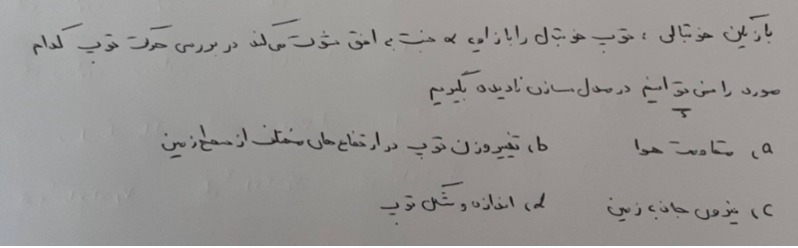 بازیکن فوتبالی ، توپ فوتبال را با زاویه α نسبت به افق شوت می‌کند در بررسی حرکت توپ کدام
مورد را نمی توانیم در مدل سازی نادیده بگیریم
a) مقاومت هوا b) تغییر وزن توپ در ارتفاع های مختلف از سطح زمین
c) نیروی جاذبه زمین d) اندازه و شکل توپ